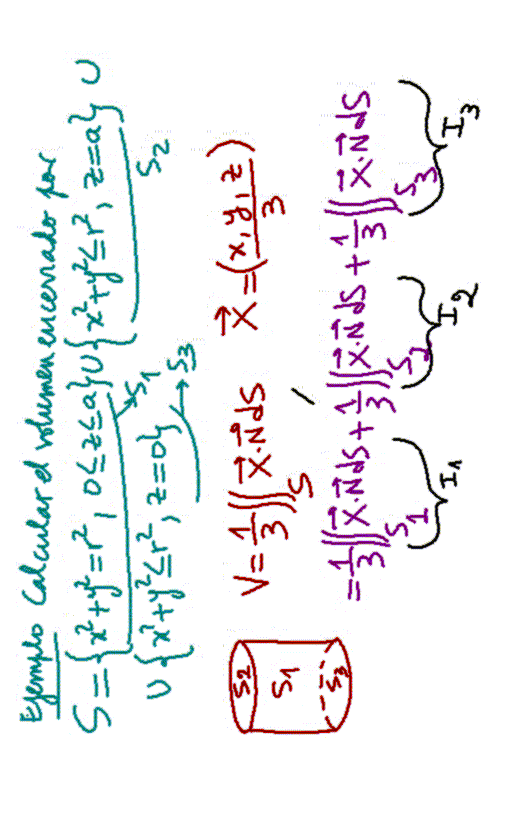 Ejemplo Calcular el volumen encerrado por
S = {x²+y²=r², 0≤z≤a} ∪ {x²+y²≤r², z=a} ∪
S₁ S₂
∪ {x²+y²≤r², z=0} → S₃
S₂
S₁
S₃
V = 1/3 ∬_S X⃗·N⃗ dS , X⃗ = (x, y, z)/3
= 1/3 ∬_S₁ X⃗·N⃗ dS + 1/3 ∬_S₂ X⃗·N⃗ dS + 1/3 ∬_S₃ X⃗·N⃗ dS
I₁ I₂ I₃